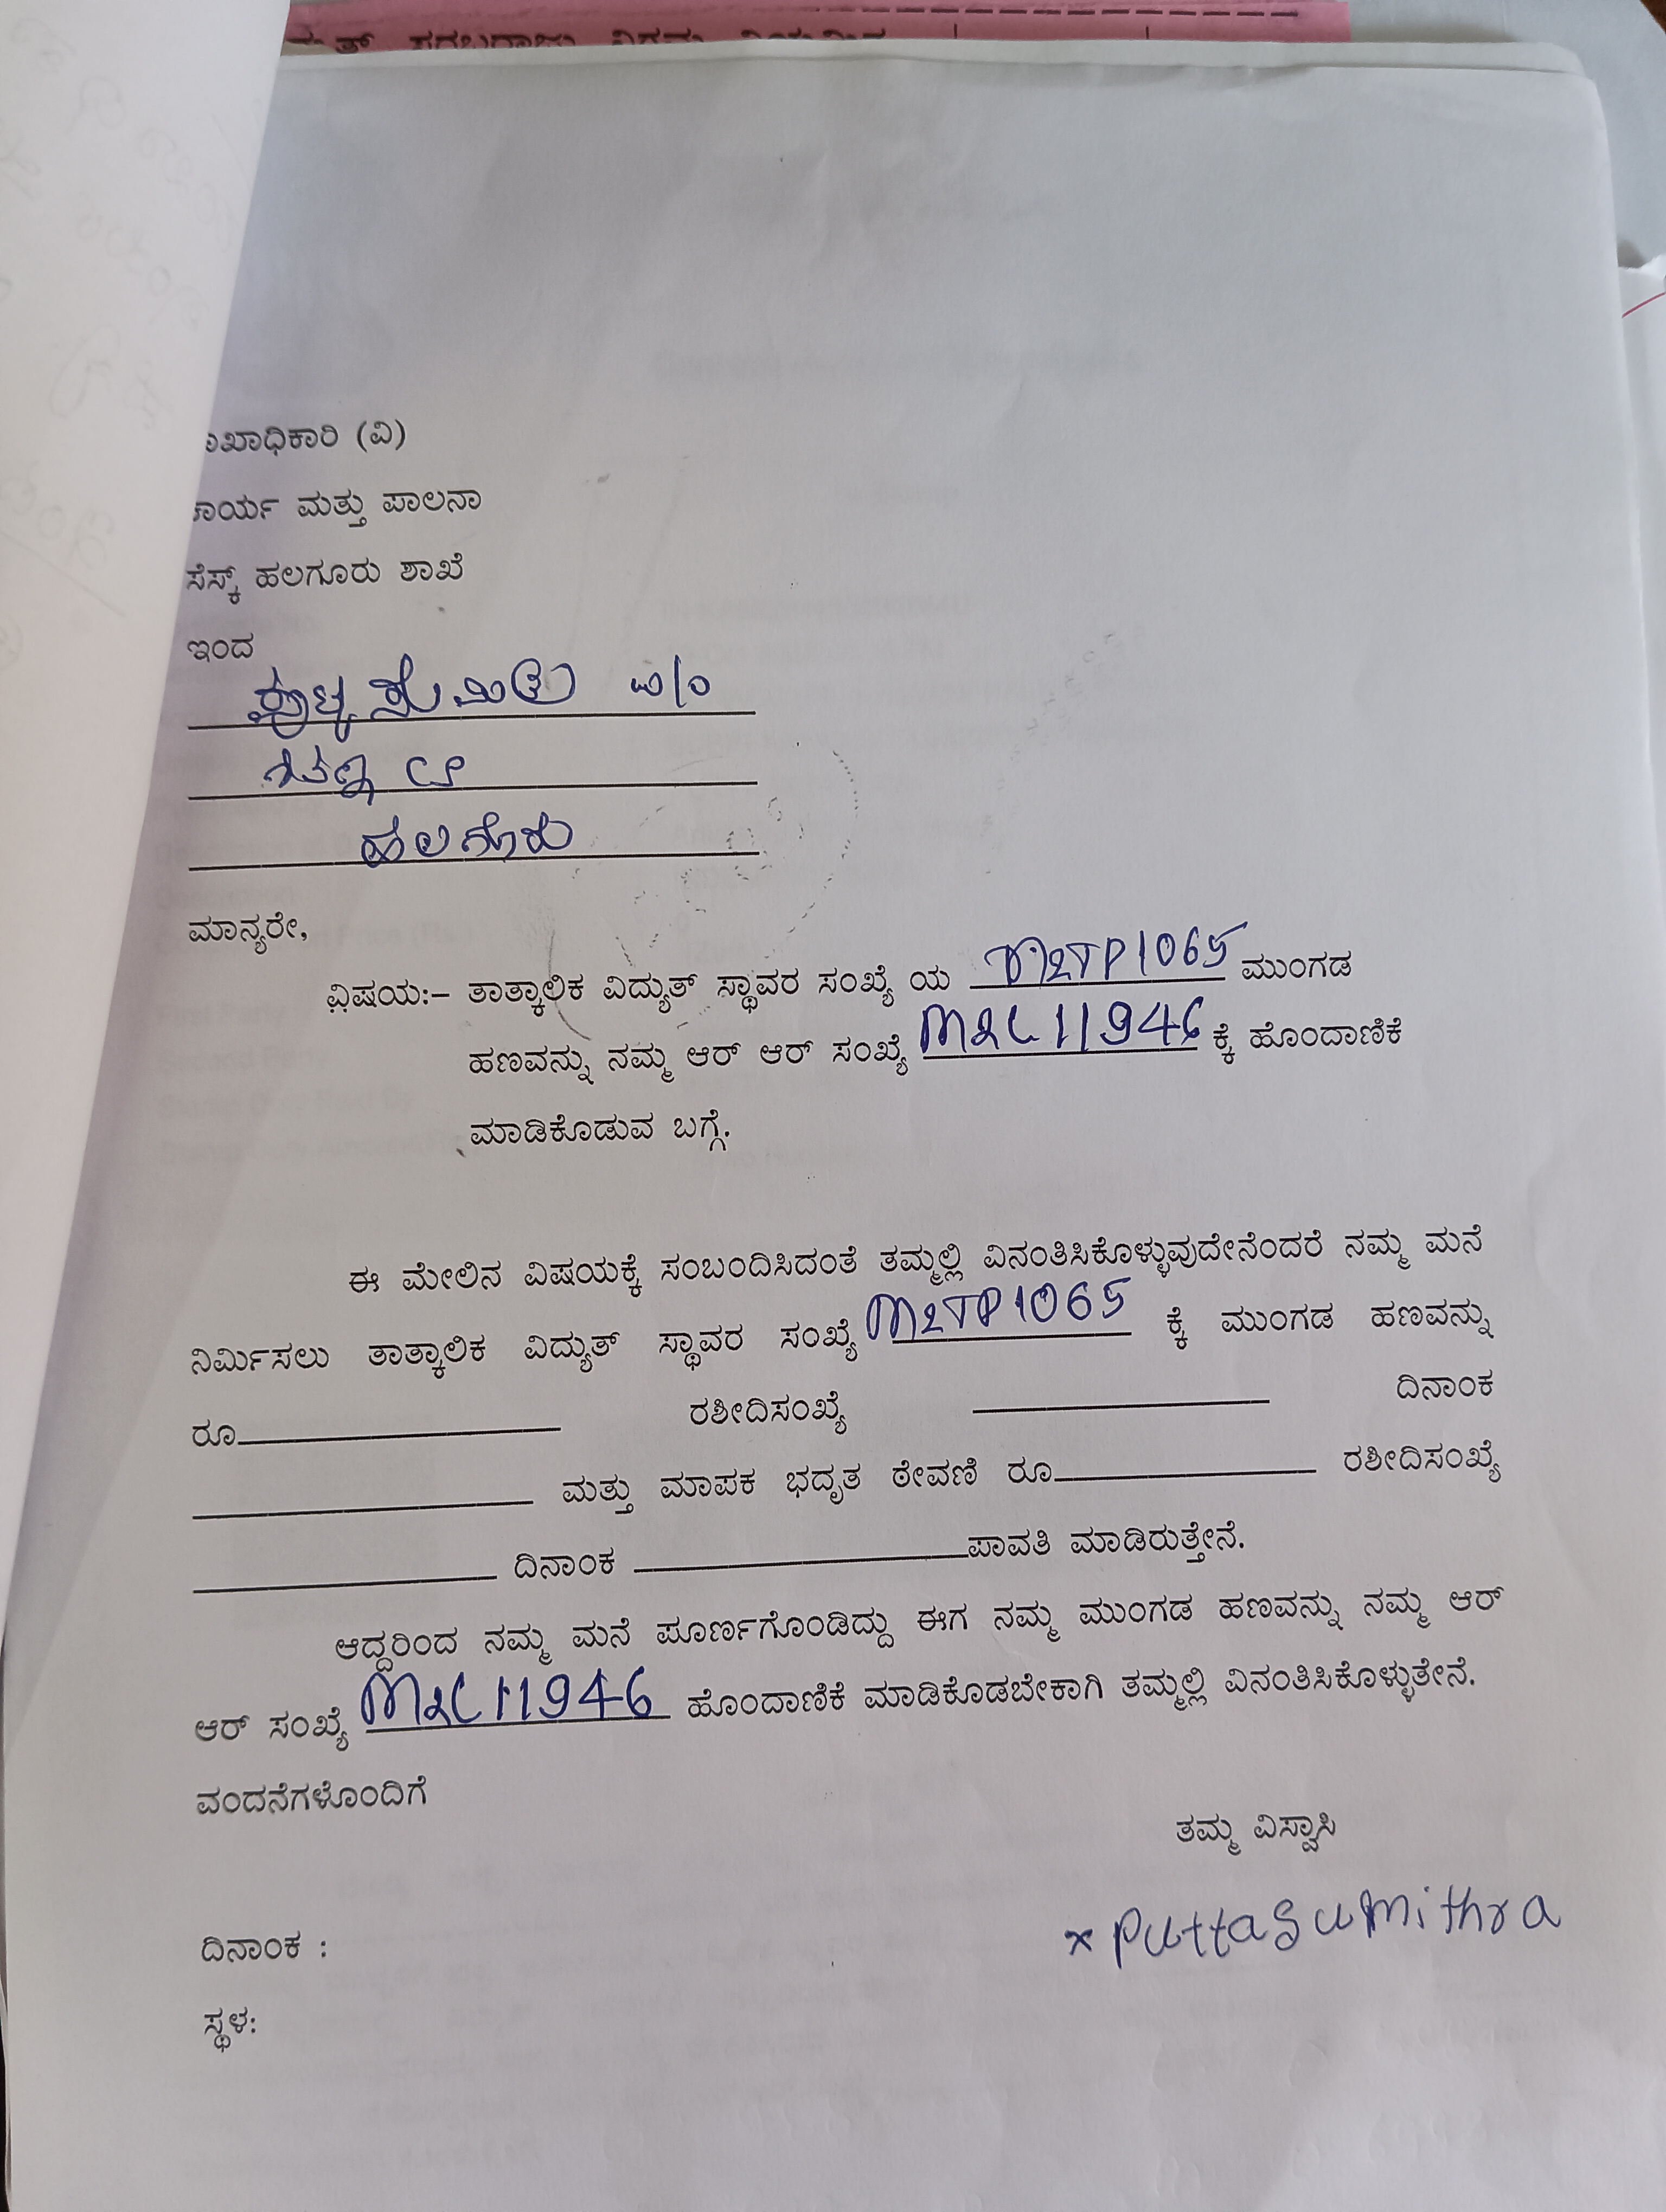 ಶಾಖಾಧಿಕಾರಿ (ವಿ)
ಕಾರ್ಯ ಮತ್ತು ಪಾಲನಾ
ಸೆಸ್ಕ್ ಹಲಗೂರು ಶಾಖೆ
ಇಂದ
ಪುಟ್ಟಸುಮಿತ್ರ
ಹಲಗೂರು
ಮಾನ್ಯರೇ,
ವಿಷಯ:– ತಾತ್ಕಾಲಿಕ ವಿದ್ಯುತ್ ಸ್ಥಾವರ ಸಂಖ್ಯೆ ಯ M2TP1065 ಮುಂಗಡ
ಹಣವನ್ನು ನಮ್ಮ ಆರ್ ಆರ್ ಸಂಖ್ಯೆ M2L11946 ಕ್ಕೆ ಹೊಂದಾಣಿಕೆ
ಮಾಡಿಕೊಡುವ ಬಗ್ಗೆ.
ಈ ಮೇಲಿನ ವಿಷಯಕ್ಕೆ ಸಂಬಂದಿಸಿದಂತೆ ತಮ್ಮಲ್ಲಿ ವಿನಂತಿಸಿಕೊಳ್ಳುವುದೇನೆಂದರೆ ನಮ್ಮ ಮನೆ
ನಿರ್ಮಿಸಲು ತಾತ್ಕಾಲಿಕ ವಿದ್ಯುತ್ ಸ್ಥಾವರ ಸಂಖ್ಯೆ M2TP1065 ಕ್ಕೆ ಮುಂಗಡ ಹಣವನ್ನು
ರೂ__________ ರಶೀದಿಸಂಖ್ಯೆ __________ ದಿನಾಂಕ
__________ ಮತ್ತು ಮಾಪಕ ಭದೃತ ಠೇವಣಿ ರೂ__________ ರಶೀದಿಸಂಖ್ಯೆ
__________ ದಿನಾಂಕ __________ಪಾವತಿ ಮಾಡಿರುತ್ತೇನೆ.
ಆದ್ದರಿಂದ ನಮ್ಮ ಮನೆ ಪೂರ್ಣಗೊಂಡಿದ್ದು ಈಗ ನಮ್ಮ ಮುಂಗಡ ಹಣವನ್ನು ನಮ್ಮ ಆರ್
ಆರ್ ಸಂಖ್ಯೆ M2L11946 ಹೊಂದಾಣಿಕೆ ಮಾಡಿಕೊಡಬೇಕಾಗಿ ತಮ್ಮಲ್ಲಿ ವಿನಂತಿಸಿಕೊಳ್ಳುತೇನೆ.
ವಂದನೆಗಳೊಂದಿಗೆ
ತಮ್ಮ ವಿಸ್ವಾಸಿ
x PuttaSuMithra
ದಿನಾಂಕ :
ಸ್ಥಳ: